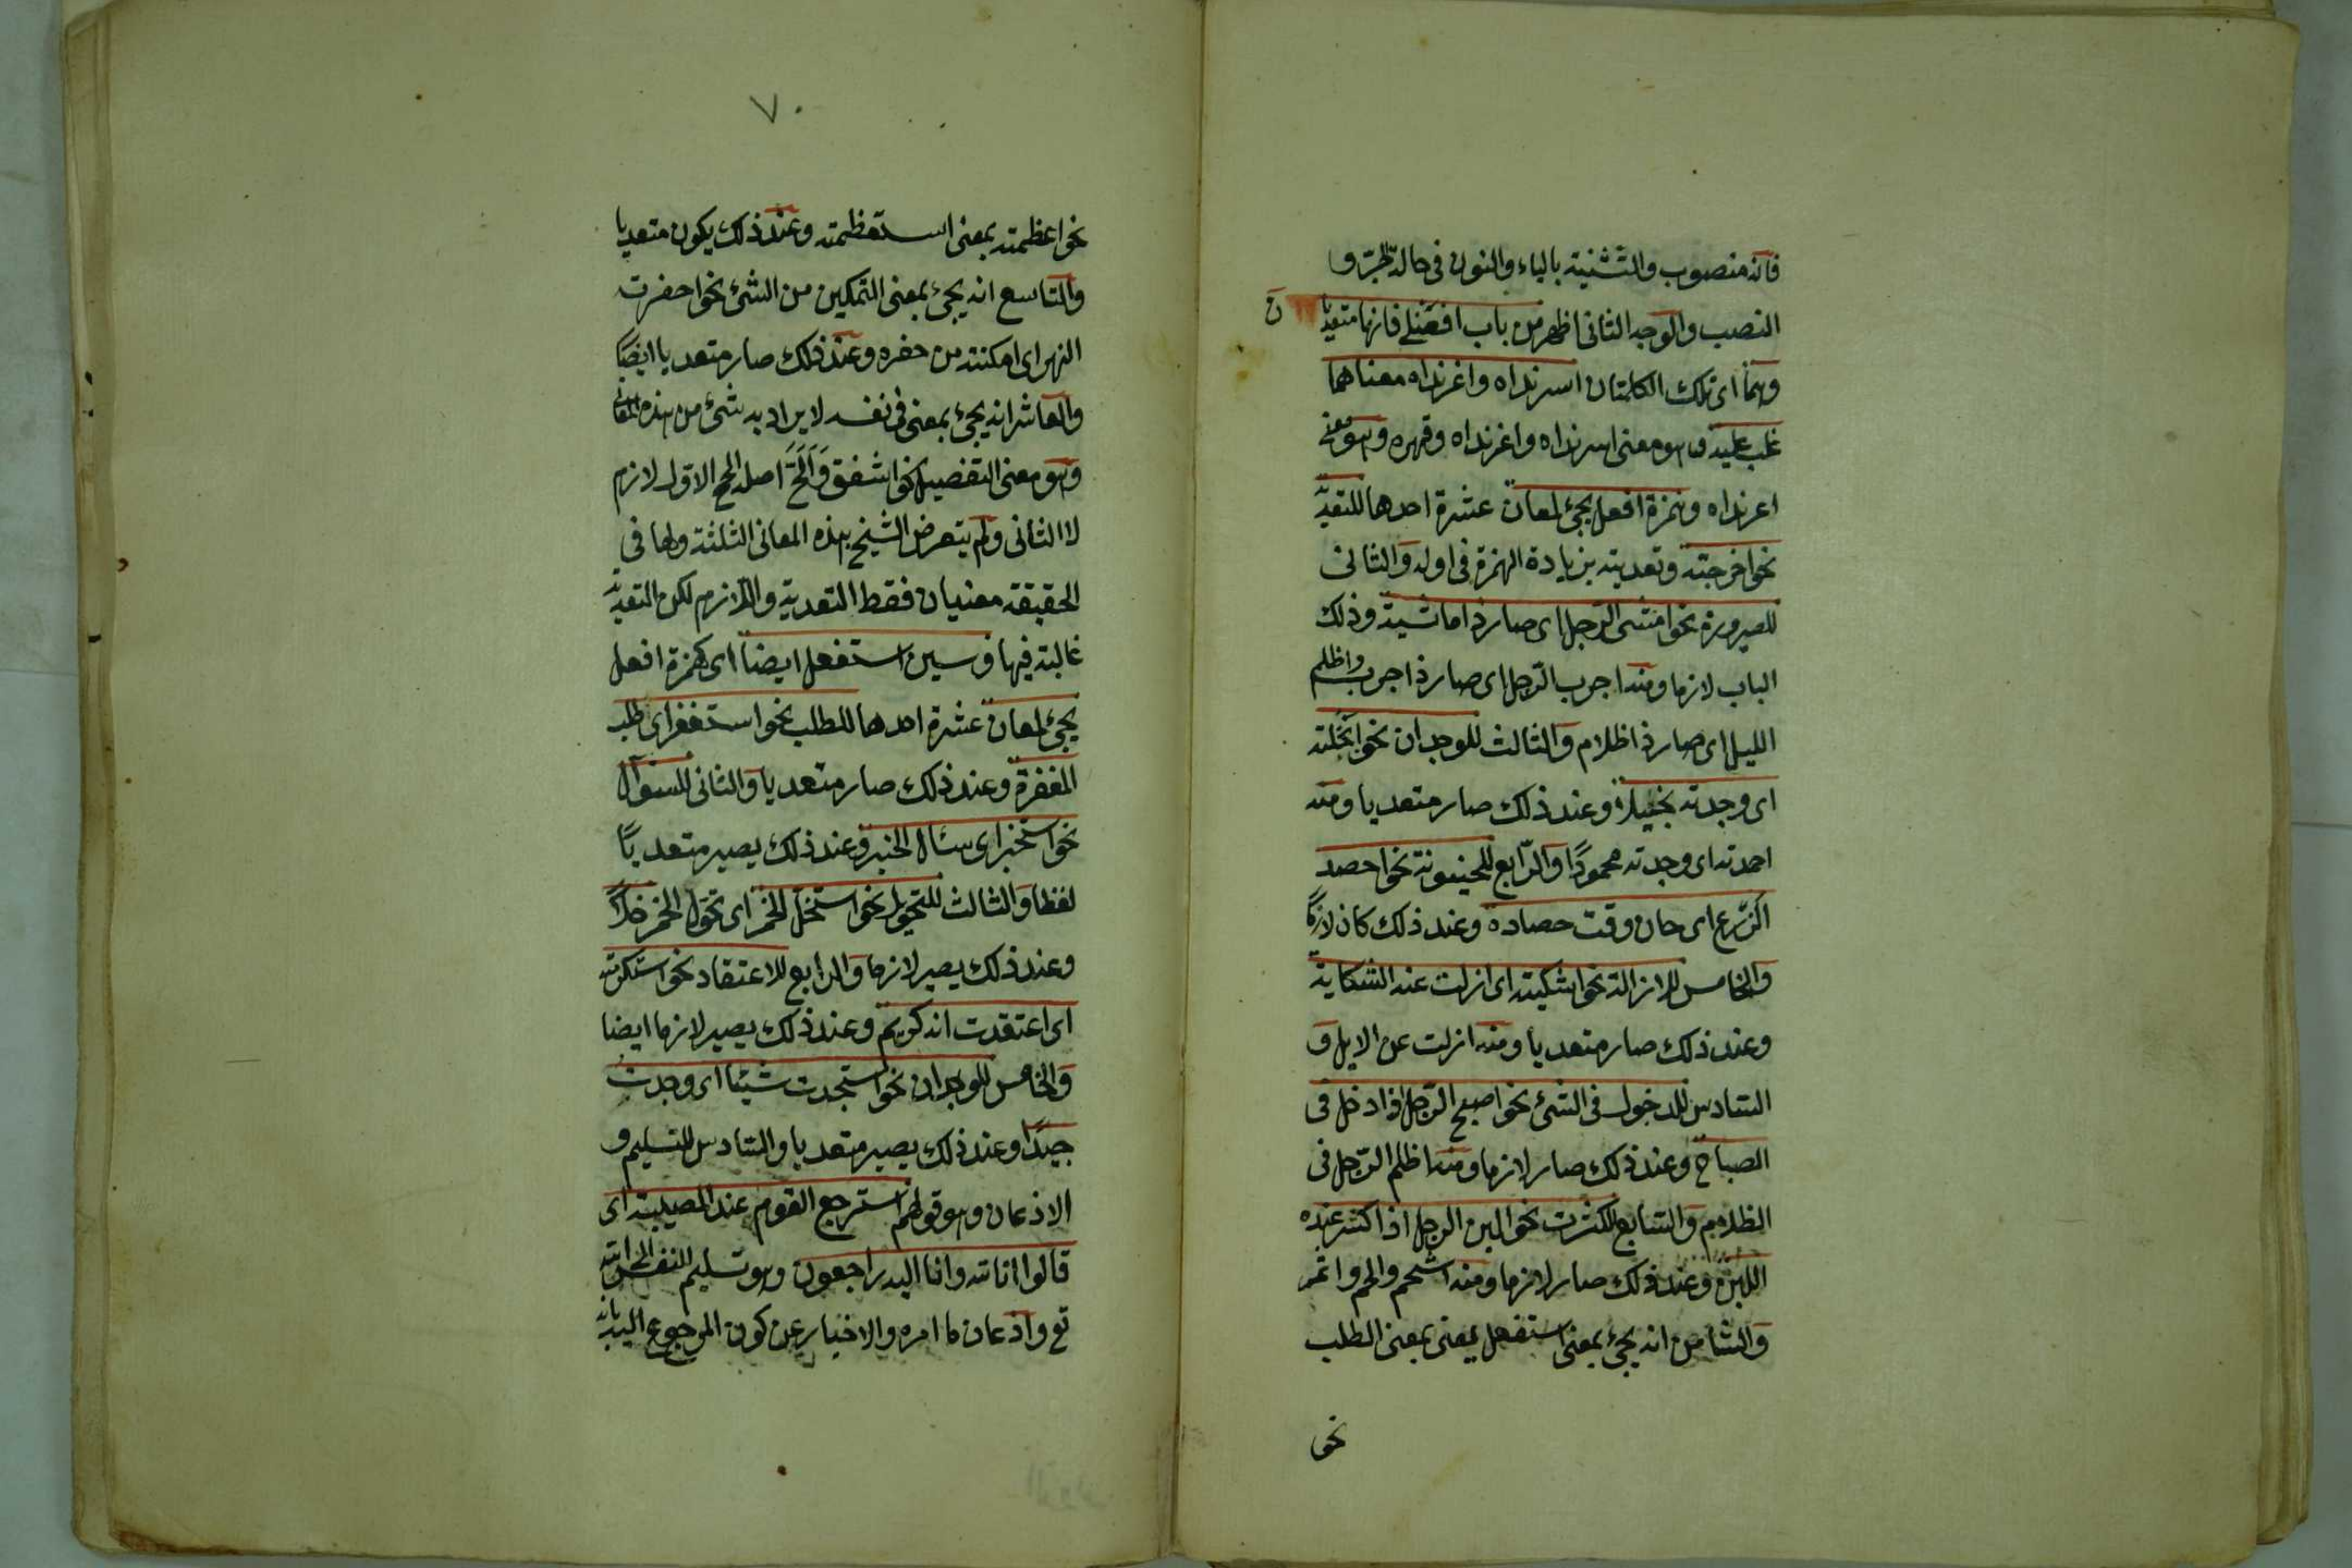 فانه منصوب والتثنية بالياء والنون فى حالة الجرّ و
النصب والوجه الثانى اظهر من باب افعنلى فانهما متعديا ن
وهما اى تلك الكلمتان اسرنداه واغرنداه معناهما
غلب عليه وهو معنى اسرنداه واغرنداه وقهره وهو معنى
اغرنداه وهمزة افعل يجئ لمعان عشرة احدها للتعدية
نحو اخرجته وتعديته بزيادة الهمزة فى اوله والثانى
للصيرورة نحو امشى الرّجل اى صار ذا ماشية وذلك
الباب لازما ومنه اجرب الرّجل اى صار ذا جرب واظلم
الليل اى صار ذا ظلام والثالث للوجدان نحو ابخلته
اى وجدته بخيلا وعند ذلك صار متعديا ومنه
احمدته اى وجدته محمودًا والرّابع للحينونة نحو احصد
الزّرع اى حان وقت حصاده وعند ذلك كان لازمًا
والخامس للازالة نحو اشكيته اى ازلت عنه الشكاية
وعند ذلك صار متعديا ومنه ازلت عن الابل و
السّادس للدخول فى الشئ نحو اصبح الرّجل اذا دخل فى
الصباح وعند ذلك صار لازما ومنه اظلم الرّجل فى
الظلام والسّابع للكثرت نحو البن الرجل اذا كثر عنده
اللبن وعند ذلك صار لازما ومنه اشحم والحم واتمر
والثامن انه يجئ بمعنى استفعل يعنى بمعنى الطلب
نحو
٧٠
نحو اعظمته بمعنى استعظمته وعند ذلك يكون متعديا
والتاسع انه يجئ بمعنى التمكين من الشئ نحو احفرت
النهر اى امكنته من حفره وعند ذلك صار متعديا ايضًا
والعاشر انه يجئ بمعنى فى نفسه لا يراد به شئ من هذه المعانى
وهو معنى التفضيل نحو اشفق وَاَلَحَّ اصله الحح الاول لازم
لا الثانى ولم يتعرض الشيخ بهذه المعانى الثلثة ولها فى
الحقيقة معنيان فقط التعدية واللازم لكن التعدية
غالبة فيها وسين استفعل ايضا اى كهمزة افعل
يجئ لمعان عشرة احدها للطلب نحو استغفر اى طلب
المغفرة وعند ذلك صار متعديا والثانى للسؤال
نحو استخبر اى سئال الخبر وعند ذلك يصير متعديًا
لفظا والثالث للتحويل نحو استخل الخمر اى تحوّل الخمر خلاً
وعند ذلك يصير لازما والرابع للاعتقاد نحو استكرمته
اى اعتقدت انه كريم وعند ذلك يصير لازما ايضا
والخامس للوجدان نحو استجدت شيئا اى وجدت
جيدًا وعند ذلك يصير متعديا والسّادس للتسليم و
الاذعان وهو قولهم استرجع القوم عند المصيبة اى
قالوا انا لله وانا اليه راجعون وهو تسليم النفس الى الله
تع واذعان ما امره والاخبار عن كون المرجوع اليه بانه